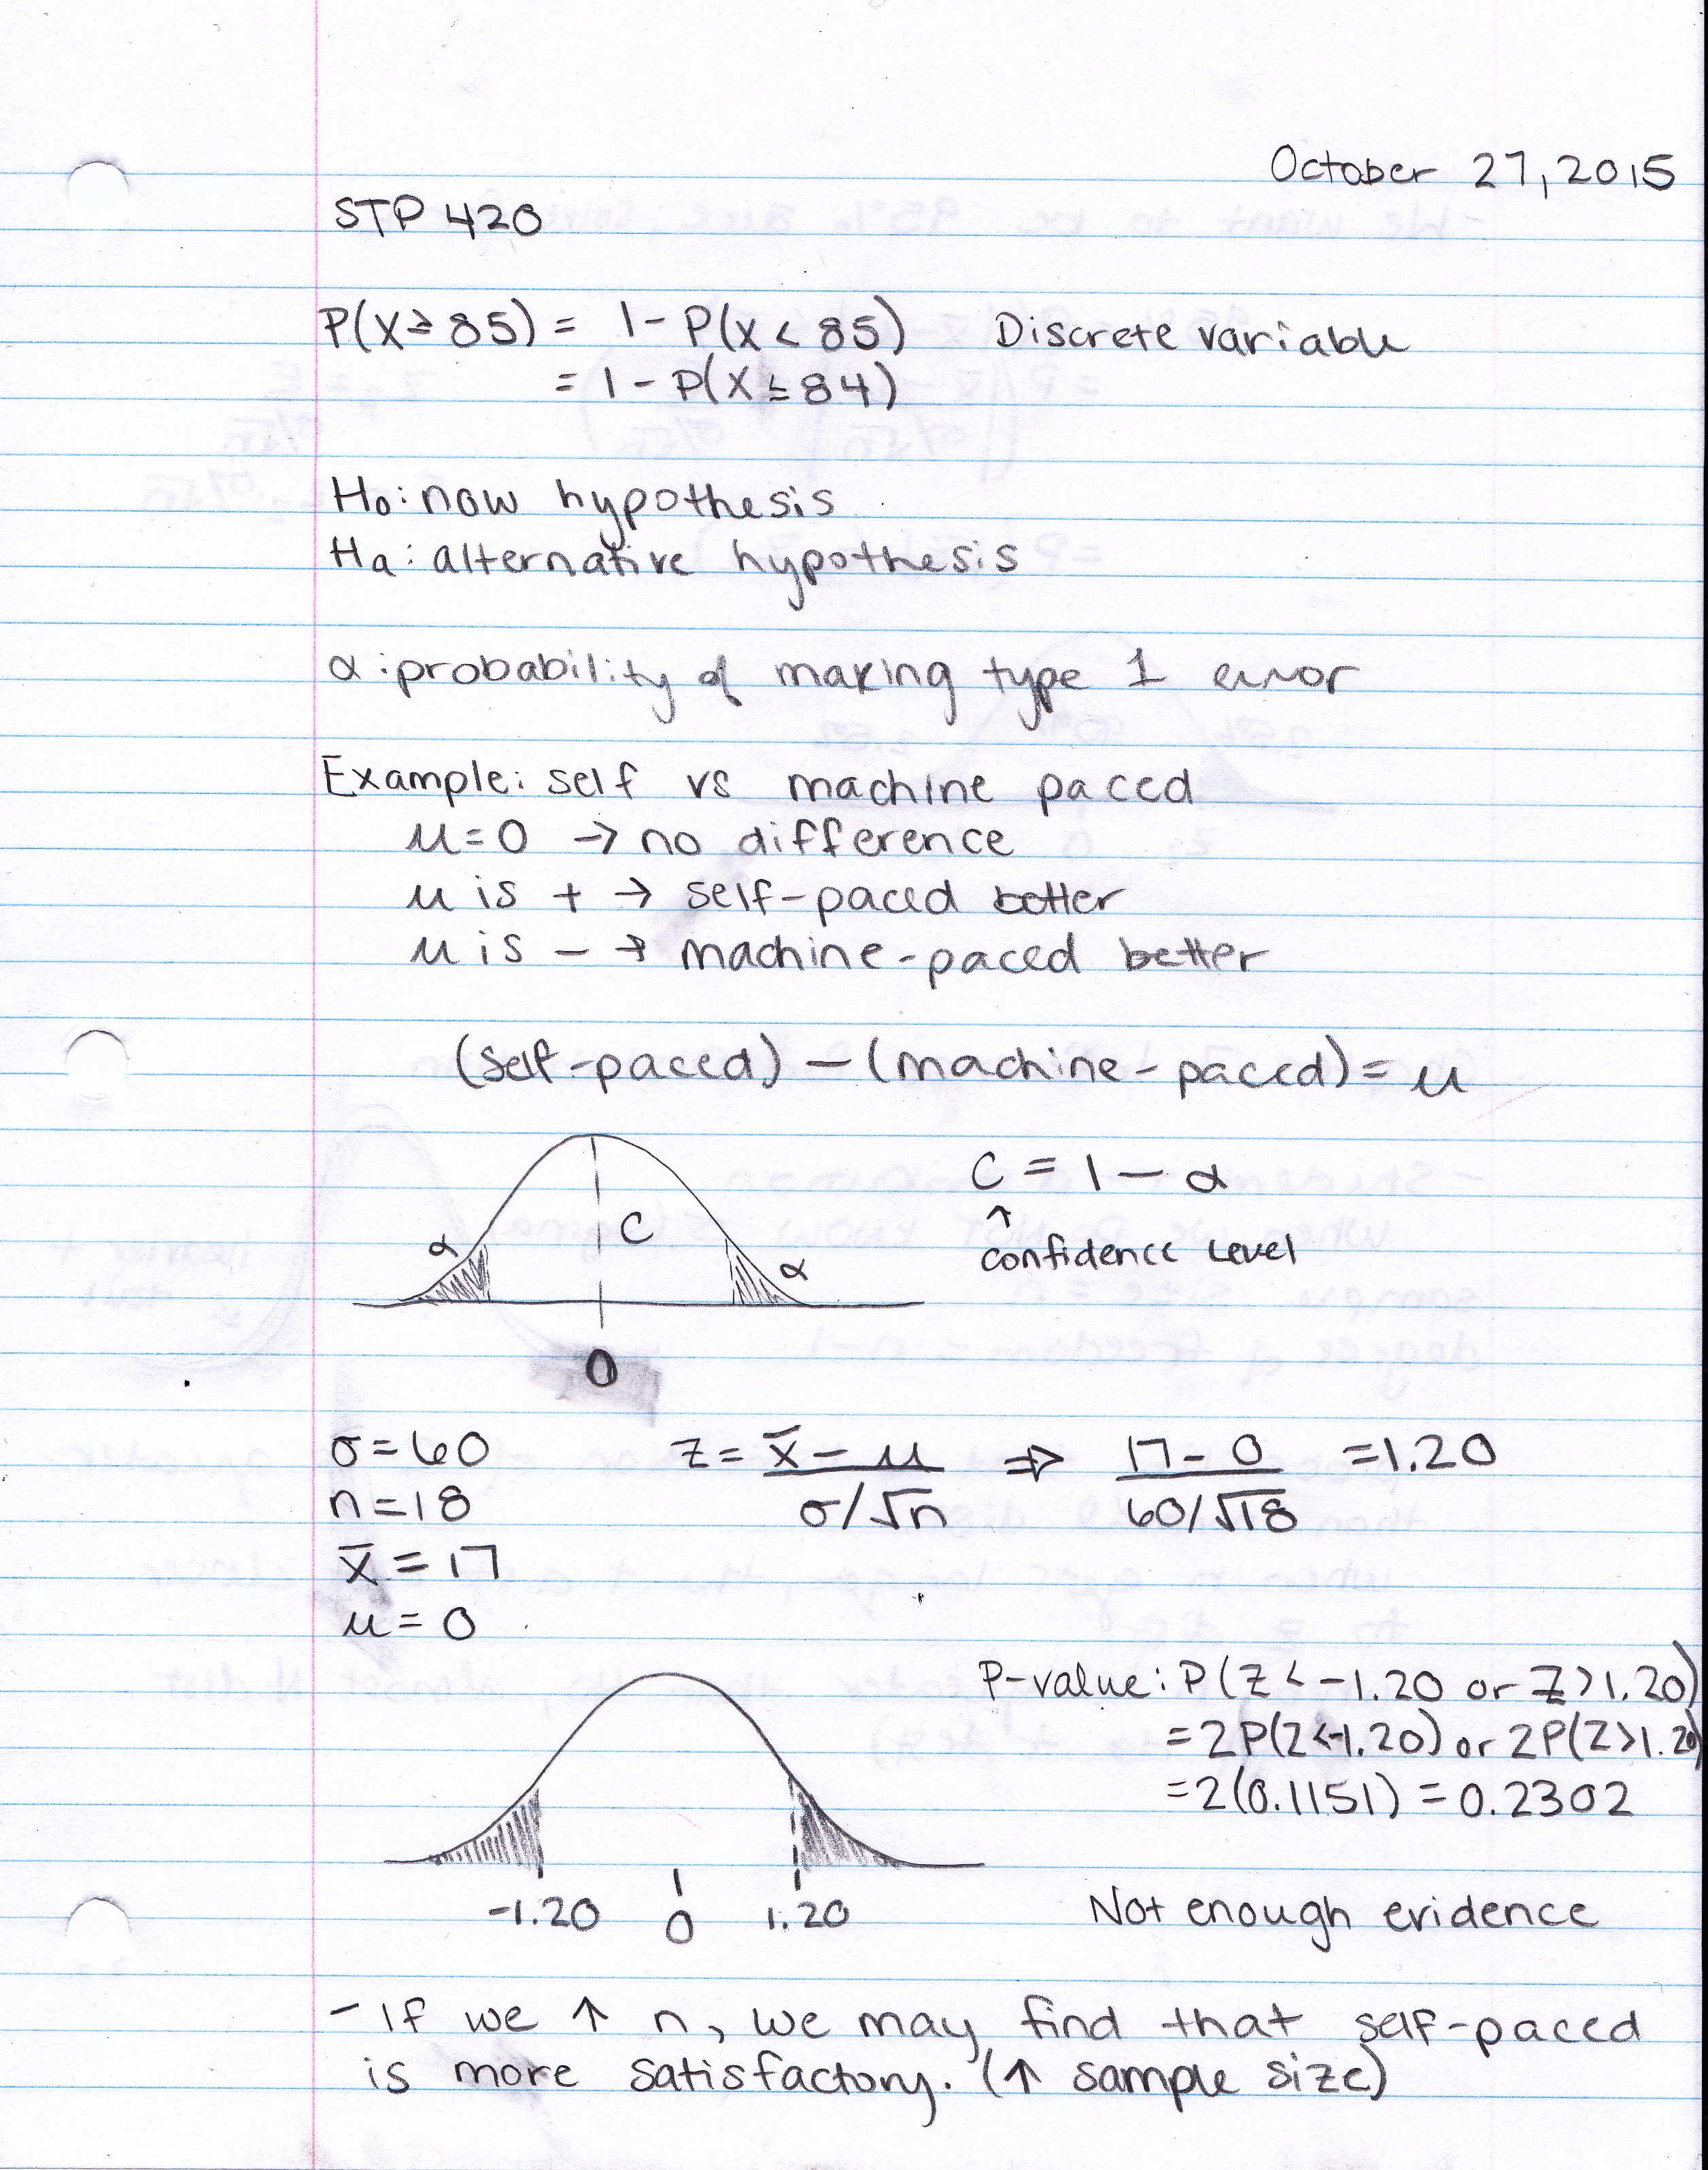 October 27, 2015
STP 420
P(X ≥ 85) = 1 - P(X < 85) Discrete variable
= 1 - P(X ≤ 84)
H₀: now hypothesis
Hₐ: alternative hypothesis
α: probability of making type 1 error
Example: self vs machine paced
μ = 0 → no difference
μ is + → self-paced better
μ is - → machine-paced better
(self-paced) - (machine-paced) = μ
C = 1 - α
↑
confidence level
α C α
0
σ = 60 z = x̄ - μ / σ/√n ⇒ 17 - 0 / 60/√18 = 1.20
n = 18
x̄ = 17
μ = 0
P-value: P(Z < -1.20 or Z > 1.20)
= 2P(Z < -1.20) or 2P(Z > 1.20)
= 2(0.1151) = 0.2302
-1.20 0 1.20 Not enough evidence
- If we ↑ n, we may find that self-paced
is more satisfactory. (↑ sample size)